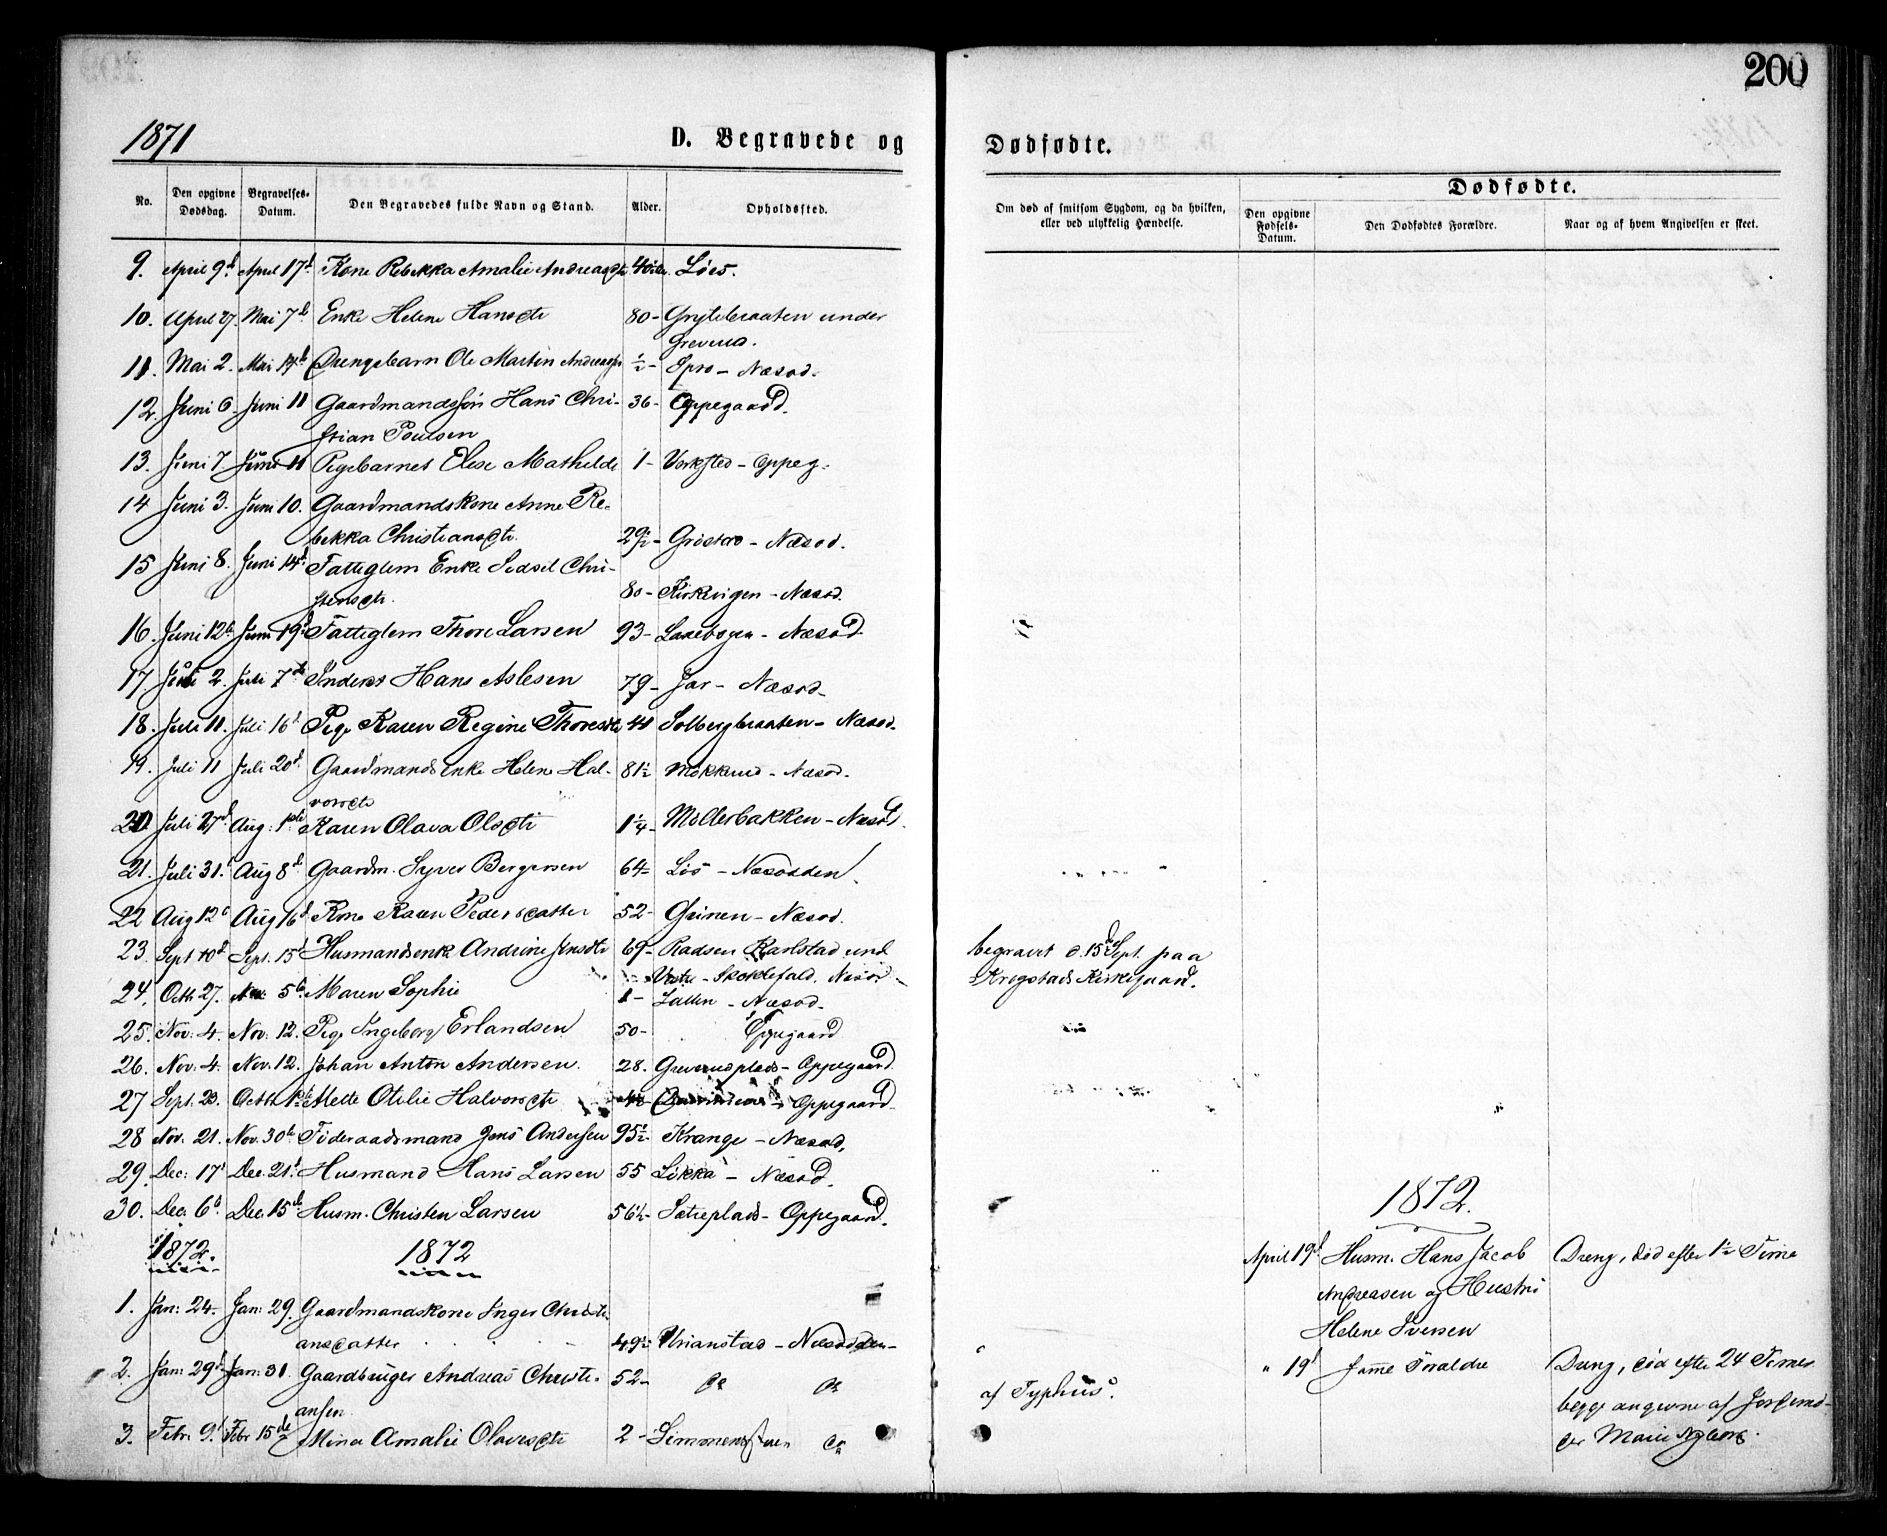 200
1871
D. Begravede og Dødfødte.
No. Den opgivne Dødsdag. Begravelses-Datum. Den Begravedes fulde Navn og Stand. Alder. Opholdssted.
9. April 9d April 17d Kone Rebekka Amalie Andreasdtr Löes.
10. April 27. Mai 7d Enke Helene Hansdtr 80 - Grytebraaten under
Greverud.
11. Mai 2. Mai 19d Drengebarn Ole Martin Andreassen ½ - Spro - Næsod.
12. Juni 6. Juni 11 Gaardmandssøn Hans Chri- 36 - Oppegaard.
stian Poulsen
13. Juni 7 Juni 11 Pigebarnet Elise Mathilde 1 - Værksted - Oppeg.
14 Juni 3. Juni 10. Gaardmandskone Anne Re-
bekka Christiansdtr. 29½ - - Næsod.
15 Juni 8. Juni 14d Fattiglem Enke Sidsel Chri-
stensdtr. 80 - Kirkevigen - Næsod.
16. Juni 12d Juni 19d Fattiglem Thore Larsen 93 - - Næsod
17 Juli 2. Juli 7de Inderst Hans Aslesen 79 - Jar - Næsod -
18. Juli 11. Juli 16d Pige Karen Regine Thoresdtr 44 Solbergbraaten - Næsod.
19. Juli 11 Juli 20d Gaardmands Enke Helene Hal- 81½ - Næsod.
vorsdtr
20 Juli 27d Aug: 1ste Karen Olava Olsdtr 1¼ - Möllerbakken - Næsod.
21. Juli 31. Aug 8d Gaardm. Syver Bergersen 64 - Lös - Næsodden
22 Aug 12d Aug 16d Kone Karen Pedersdatter 52 - Grinen - Næsod.
23. Sept 10d Sept. 15d Husmandsenke Andrine Jensdtr 69 - Karlstad und
Vestre - Skoklefald. Næsod.
24. Octb 27. Nov: 5d Maren Sophie 1 - - Næsod -
25. Nov: 4. Nov: 12. Pige Ingeborg Erlandsen 50 - Oppegaard
26. Nov: 4. Nov: 12. Johan Anton Andersen. 28. Greverudplads - Oppegaard.
27 Sept. 23. Octb. 1ste Mette Otilie Halvorsdtr - Oppegaard -
28 Nov. 21. Nov. 30d Föderaadsmand Jens Andersen 95½ Krange - Næsod.
29. Dec: 17 Dec. 21d Husmand Hans Larsen 55 Løkka - Næsod.
30. Dec. 6d Dec. 15d Husm. Christen Larsen 56½ - Sætreplads - Oppegaard.
1872. 1872
1. Jan: 24. Jan: 29. Gaardmandskone Inger Christi-
ansdatter 49½ - Urianstad - Næsodden -
2. Jan: 29d Jan: 31. Gaardbruger Andreas Christi- 52 - do do
ansen
3. Febr. 9d Febr 15de Mina Amalie Olavesdtr 2 - do
Om død af smitsom Sygdom, og da hvilken, eller ved ulykkelig Hændelse.
Dødfødte.
Den opgivne Fødsels-Datum. Den Dødfødtes Forældre. Naar og af hvem Angivelsen er skeet.
begravet d. 15de Sept. paa
Krogstads Kirkegaard.
af Typhus.
1872.
April 19d Husm. Hans Jacob Dreng, död efter 1½ Time
Andreasen og Hustru
Helene Iversen
" 19d Samme Forældre Dreng, död efter 24 Timer
begge angivne af Jordemo-
der Marie Nyborg.